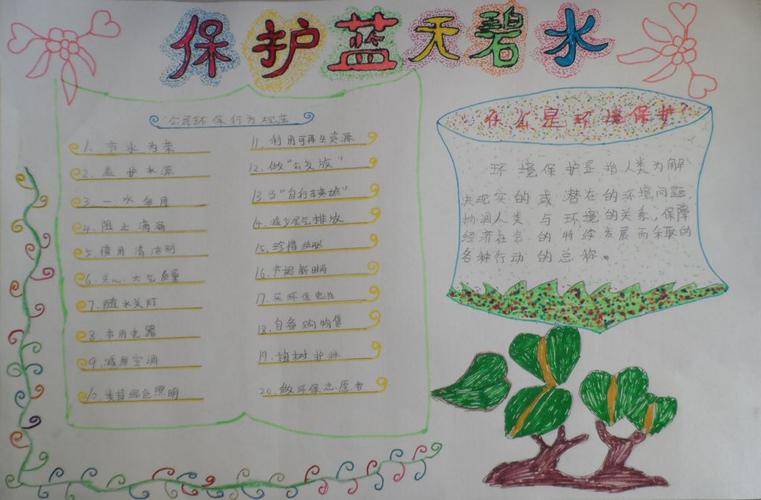 保护蓝天碧水
公民环保行为规范
1. 节水为荣
2. 监护水源
3. 一水多用
4. 阻止滴漏
5. 慎用清洁剂
6. 关心大气质量
7. 随手关灯
8. 节用电器
9. 减用空调
10. 支持绿色照明
11. 利用可再生资源
12. 做“公交族”
13. 当“自行车英雄”
14. 减少尾气排放
15. 珍惜纸张
16.
17. 买环保电池
18. 自备购物袋
19. 植树护林
20. 做环保志愿者
什么是环境保护?
环境保护是指人类为解
决现实的或潜在的环境问题,
协调人类与环境的关系,保障
经济社会的持续发展而采取的
各种行动的总称。